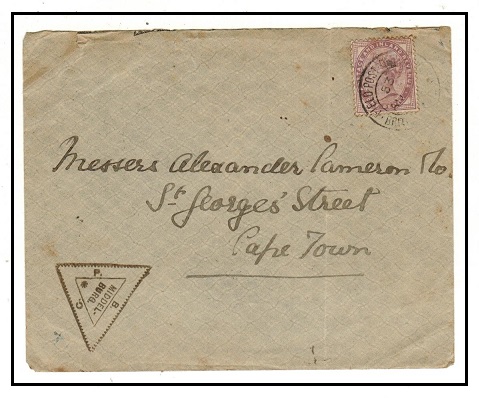 FIELD POST
Messers Alexander Cameron Co.
St Georges' Street
Cape Town
P. B. C.
MIDDEL-
BURG.